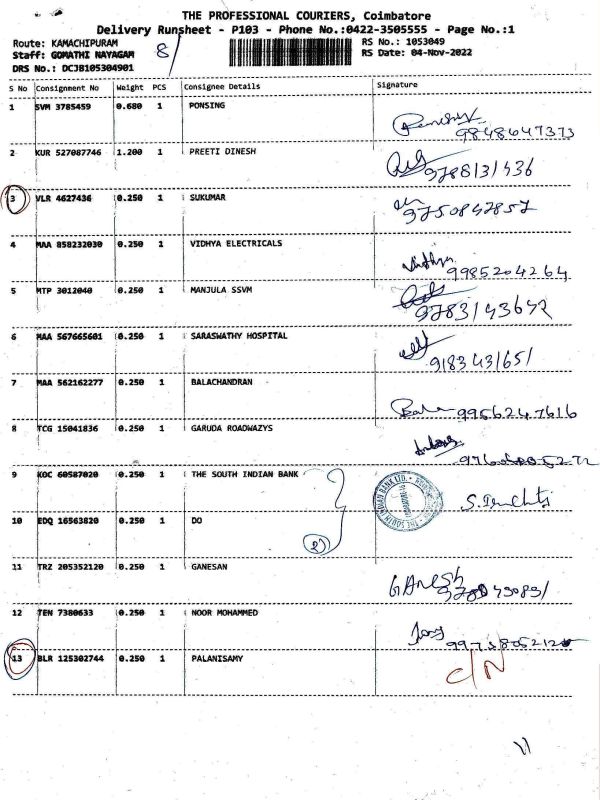 THE PROFESSIONAL COURIERS, Coimbatore
Delivery Runsheet - P103 - Phone No.:0422-3505555 - Page No.:1
Route: KAMACHIPURAM
RS No.: 1053049
Staff: GOMATHI NAYAGAM
8/
RS Date: 04-Nov-2022
DRS No.: DCJB105304901
S No Consignment No Weight PCS Consignee Details Signature
1 SVM 3785459 0.680 1 PONSING
9848647373
2 KUR 527087746 1.200 1 PREETI DINESH
9788131436
3 VLR 4627436 0.250 1 SUKUMAR
9750847857
4 MAA 858232030 0.250 1 VIDHYA ELECTRICALS
Vidhya 9985204264
5 MTP 3012040 0.250 1 MANJULA SSVM
9783143642
6 MAA 567665601 0.250 1 SARASWATHY HOSPITAL
9183431651
7 MAA 562162277 0.250 1 BALACHANDRAN
Bala 9956247616
8 TCG 15041836 0.250 1 GARUDA ROADWAZYS
9 KOC 60587020 0.250 1 THE SOUTH INDIAN BANK
10 EDQ 16563820 0.250 1 DO
2)
11 TRZ 205352120 0.250 1 GANESAN
GANESH
12 TEN 7380633 0.250 1 NOOR MOHAMMED
13 BLR 125302744 0.250 1 PALANISAMY
C/N
11